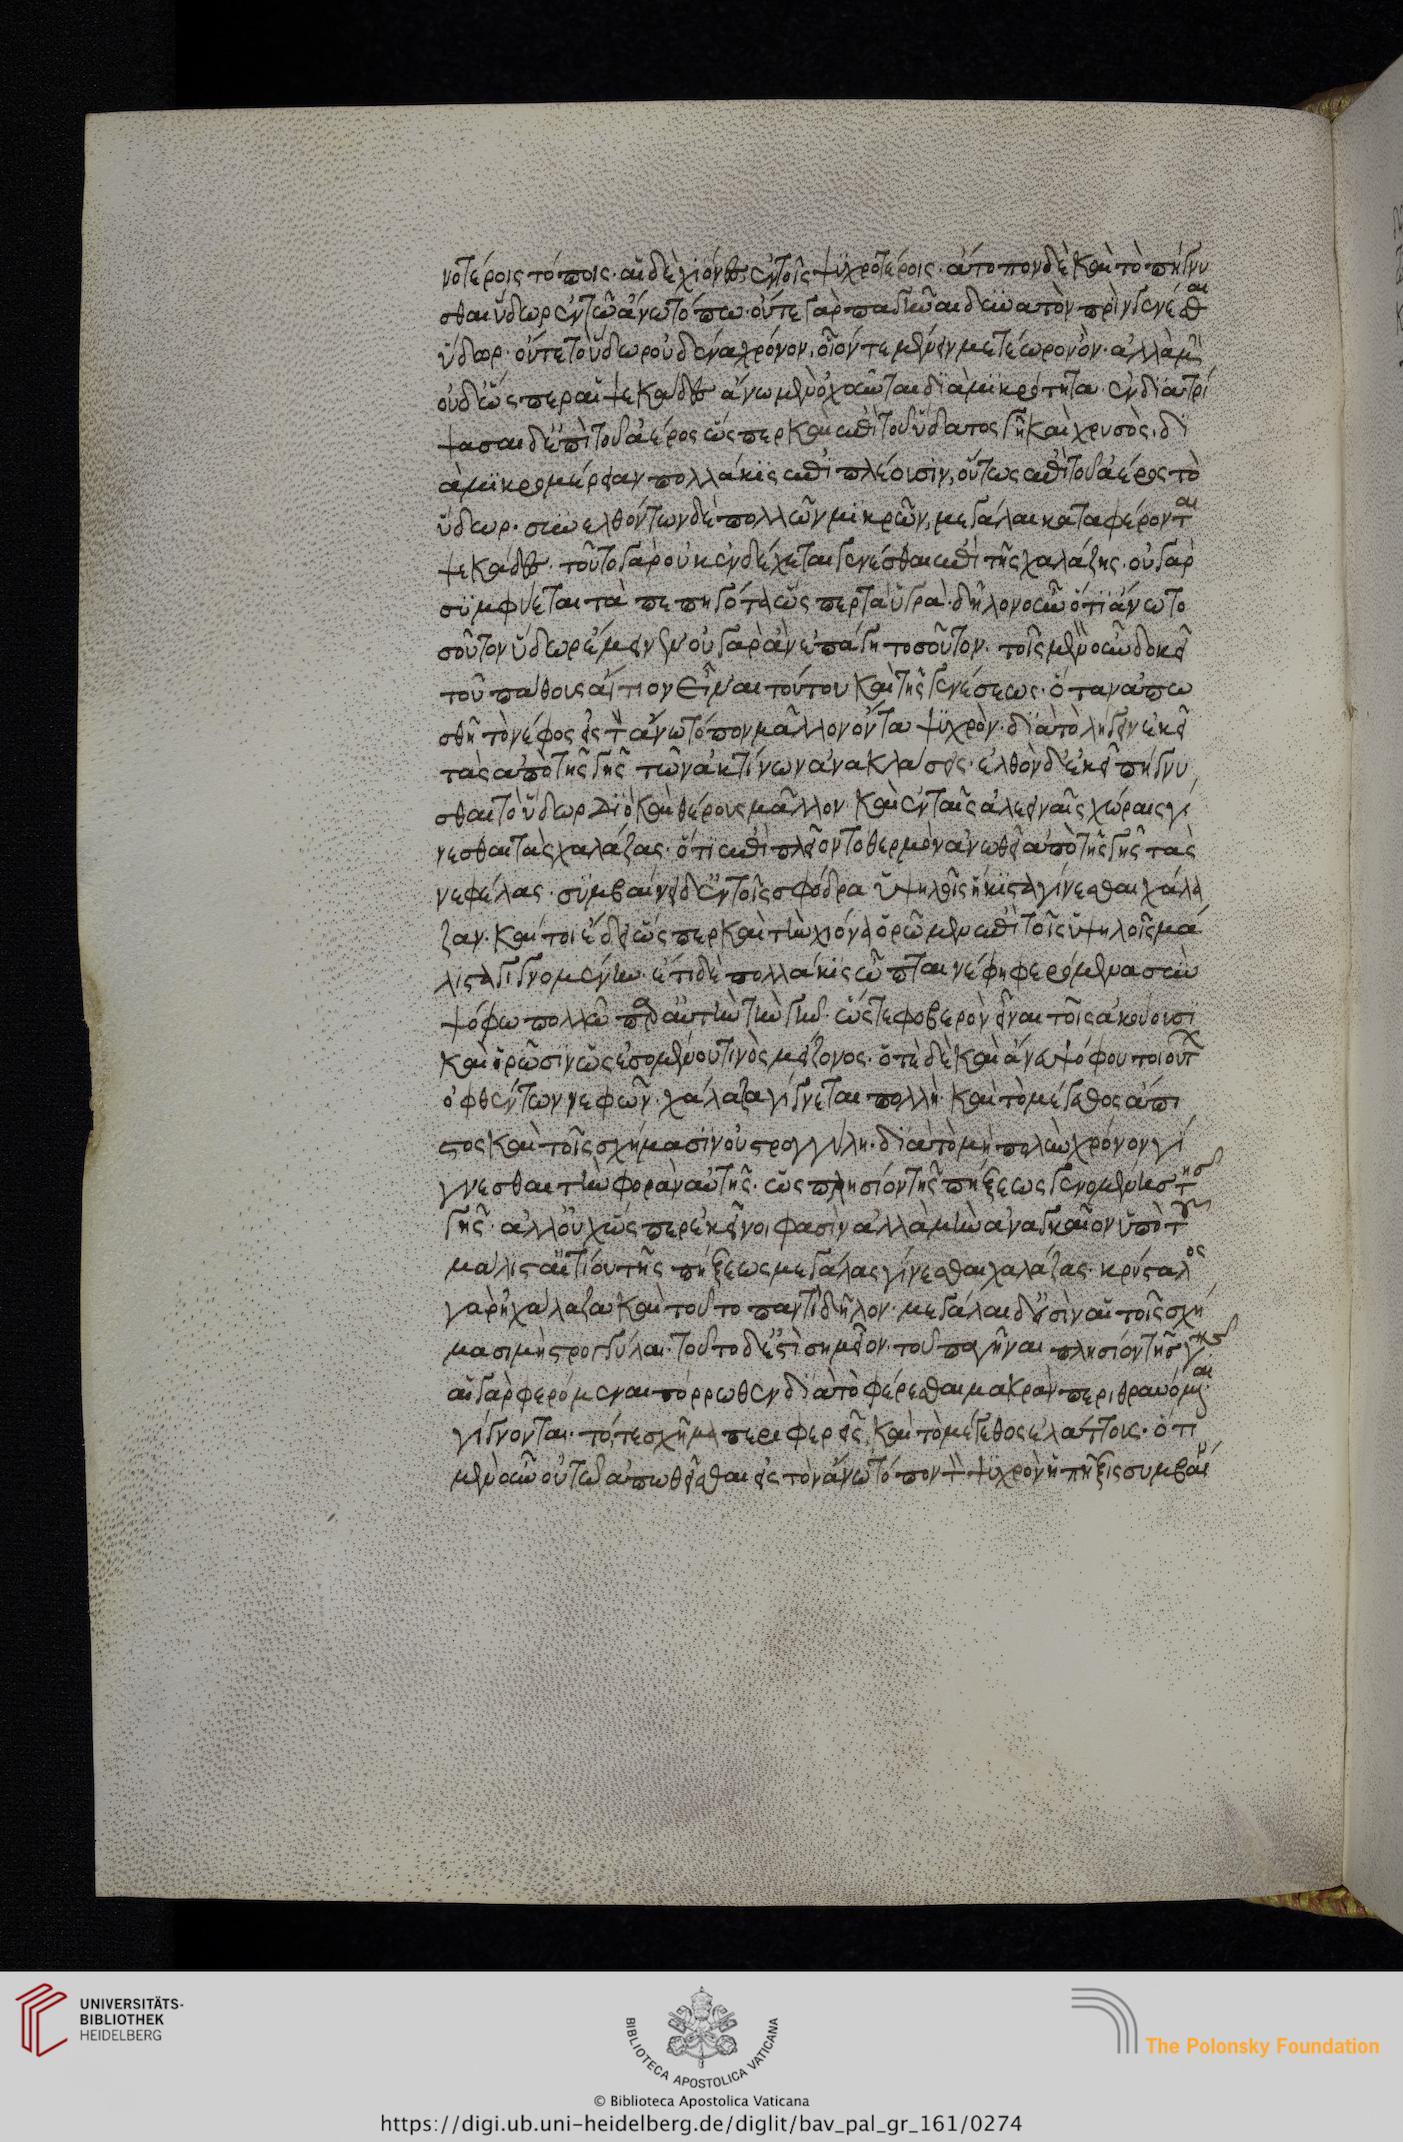 νοτέροις τόποις· αἱ δὲ χιόνες ἐν τοῖς ψυχροτέροις· ἄτοπον δὲ καὶ τὸ πήγνυ
σθαι ὕδωρ ἐν τῶ ἄνω τόπω· οὔτε γὰρ παγῆναι δυνατὸν πρὶν γενέσθαι
ὕδωρ· οὔτε τὸ ὕδωρ οὐδένα χρόνον, οἷόν τε μένειν μετέωρον ὄν· ἀλλὰ μὴν
οὐδ' ὥσπερ αἱ ψεκάδες ἄνω μὲν ὀχοῦνται διὰ μικρότητα· ἐνδιατρί
ψασαι δ' ἐπὶ τοῦ ἀέρος ὥσπερ καὶ ἐπὶ τοῦ ὕδατος γῆ καὶ χρυσὸς, δι
ὰ μικρομέρειαν πολλάκις ἐπιπλέουσιν, οὕτως ἐπὶ τοῦ ἀέρος τὸ
ὕδωρ· συνελθόντων δὲ πολλῶν μικρῶν, μεγάλαι καταφέρονται
ψεκάδες· τοῦτο γὰρ οὐκ ἐνδέχεται γενέσθαι ἐπὶ τῆς χαλάζης· οὐ γὰρ
συμφύεται τὰ πεπηγότα ὥσπερ τὰ ὑγρά· δῆλον οὖν ὅτι ἄνω το
σοῦτον ὕδωρ ἔμεινεν· οὐ γὰρ ἂν ἐπάγη τοσοῦτον· τοῖς μὲν οὖν δοκεῖ
τοῦ πάθους αἴτιον εἶναι τούτου καὶ τῆς γενέσεως· ὅταν ἀπω
σθῆ τὸ νέφος εἰς τὸν ἄνω τόπον μᾶλλον ὄντα ψυχρὸν· διὰ τὸ λήγειν ἐκεῖ
τὰς ἀπὸ τῆς γῆς τῶν ἀκτίνων ἀνακλάσεις· ἐλθὸν δ' ἐκεῖ πήγνυ
σθαι τὸ ὕδωρ Διὸ καὶ θέρους μᾶλλον καὶ ἐν ταῖς ἀλεειναῖς χώραις γί
νεσθαι τὰς χαλάζας· ὅτι ἐπὶ πλεῖον τὸ θερμὸν ἀνωθεῖ ἀπὸ τῆς γῆς τὰς
νεφέλας· συμβαίνει δ' ἐν τοῖς σφόδρα ὑψηλοῖς ἥκιστα γίνεσθαι χάλα
ζαν· καίτοι ἔδει ὥσπερ καὶ τὴν χιόνα ὁρῶμεν ἐπὶ τοῖς ὑψηλοῖς μά
λιστα γιγνομένην· ἔτι δὲ πολλάκις ὦπται νέφη φερόμενα σὺν
ψόφω πολλῶ παρ' αὐτὴν τὴν γῆν· ὥστε φοβερὸν εἶναι τοῖς ἀκούουσι
καὶ ὁρῶσιν ὡς ἐσομένου τινὸς μείζονος· ὁτὲ δὲ καὶ ἄνευ ψόφου τοιούτων
ὀφθέντων νεφῶν· χάλαζα γίγνεται πολλὴ καὶ τὸ μέγεθος ἄπι
στος καὶ τοῖς σχήμασιν οὐ στρογγύλη· διὰ τὸ μὴ πολὺν χρόνον γί
γνεσθαι τὴν φορὰν αὐτῆς· ὡς πλησίον τῆς πήξεως γενομένης τῆς
γῆς· ἀλλ' οὐχ ὥσπερ ἐκεῖνοι φασὶν ἀλλὰ μὴν ἀναγκαῖον ὑπὸ τοῦ
μάλιστα αἰτίου τῆς πήξεως μεγάλας γίνεσθαι χαλάζας· κρύσταλος
γὰρ ἡ χάλαζα καὶ τοῦτο παντὶ δῆλον· μεγάλαι δ' εἰσὶν αἱ τοῖς σχή
μασι μὴ στρογγύλαι· τοῦτο δ' ἐστὶ σημεῖον· τοῦ παγῆναι πλησίον τῆς γῆς
αἱ γὰρ φερόμεναι πόρρωθεν διὰ τὸ φέρεσθαι μακρὰν περιθραυόμεναι
γίγνονται· τό τε σχῆμα περιφερεῖς, καὶ τὸ μέγεθος ἐλάττους· ὅτι
μὲν οὖν οὐ τῶ ἀπωθεῖσθαι εἰς τὸν ἄνω τόπον τὸν ψυχρὸν ἡ πῆξις συμβαί
UNIVERSITÄTS-
BIBLIOTHEK
HEIDELBERG
BIBLIOTECA APOSTOLICA VATICANA
The Polonsky Foundation
© Biblioteca Apostolica Vaticana
https://digi.ub.uni-heidelberg.de/diglit/bav_pal_gr_161/0274